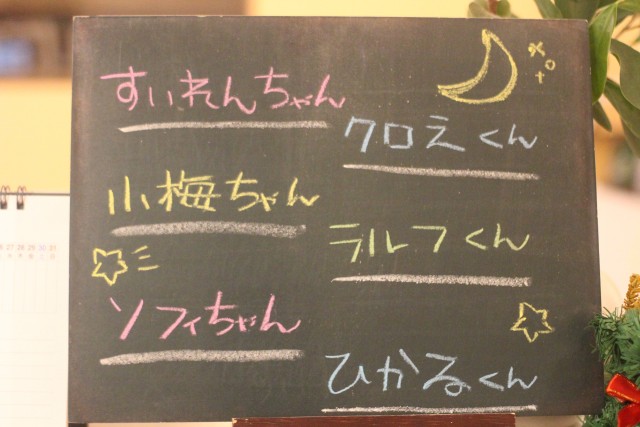 すいれんちゃん
クロえくん
小梅ちゃん
ラルフくん
ソフィちゃん
ひかるくん